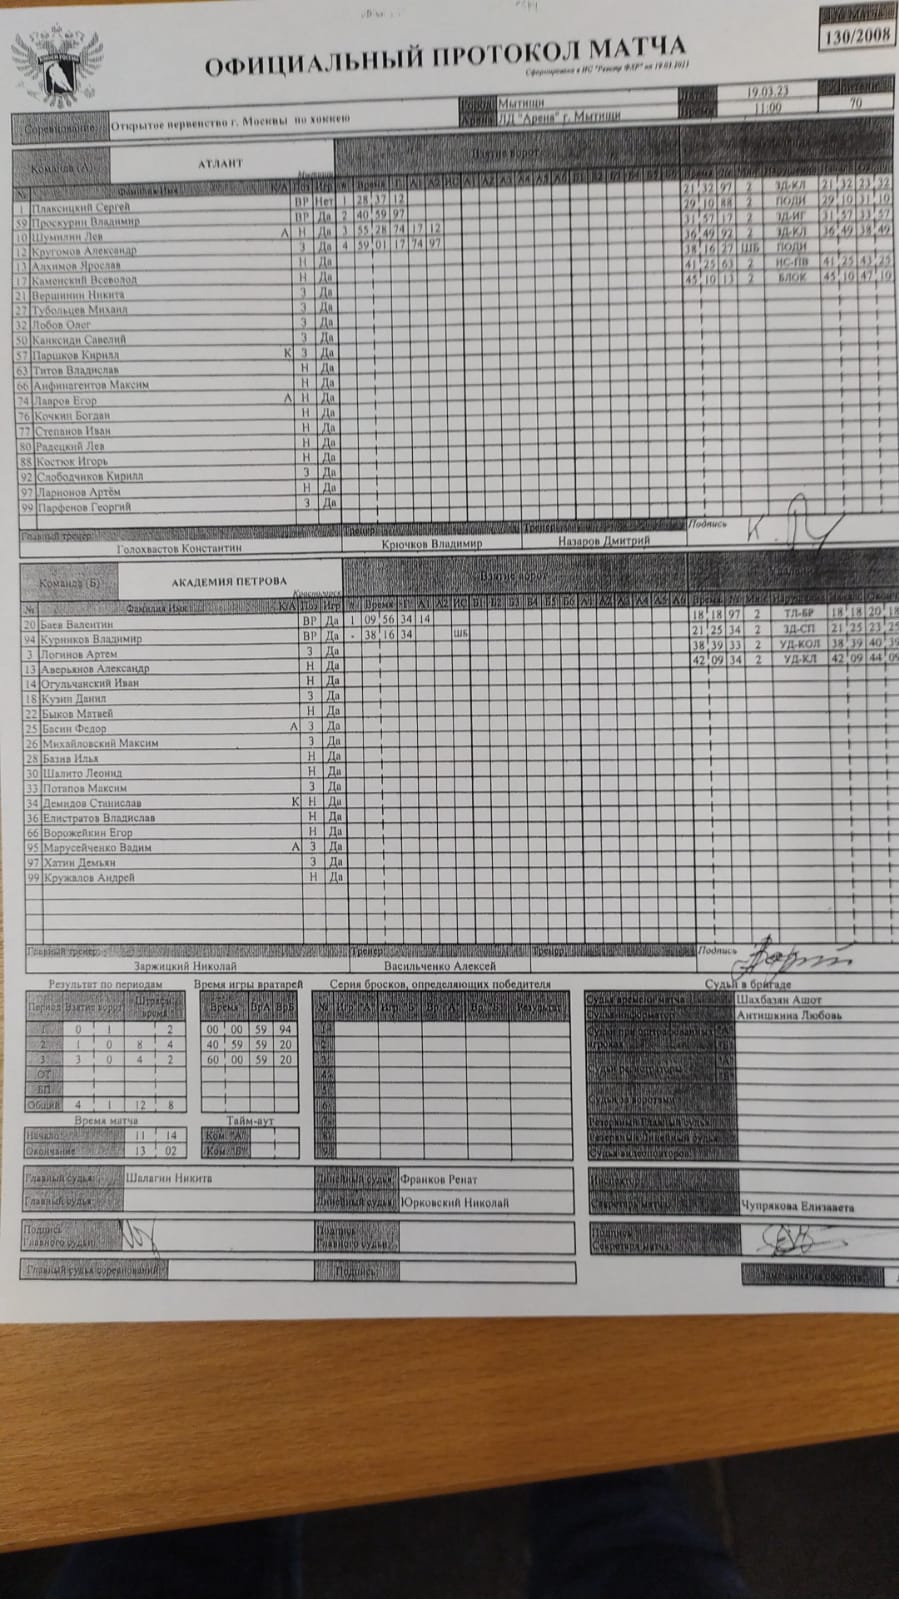 130/2008
ОФИЦИАЛЬНЫЙ ПРОТОКОЛ МАТЧА
Сформирован в ИС "Реестр ФХР" на 19.03.2023
Соревнование: Открытое первенство г. Москвы по хоккею Город Мытищи 19.03.23 70
Арена ЛД "Арена" г. Мытищи Время 11:00
Команда (А) АТЛАНТ Взятие ворот
№ Фамилия Имя К/А Поз Игр
1 Плаксицкий Сергей ВР Нет 1 28 37 12 21 32 97 2 ЗД-КЛ 21 32 23 32
59 Проскурин Владимир ВР Да 2 40 59 97 29 10 88 2 ПОДН 29 10 31 10
10 Шумилин Лев А Н Да 3 55 28 74 17 12 31 57 17 2 ЗД-ИГ 31 57 33 57
12 Кругомов Александр З Да 4 59 01 17 74 97 36 49 92 2 ЗД-КЛ 36 49 38 49
13 Алхимов Ярослав Н Да 38 16 27 ШБ ПОДН
17 Каменский Всеволод Н Да 41 25 63 2 НС-ПВ 41 25 43 25
21 Вершинин Никита З Да 45 10 13 2 БЛОК 45 10 47 10
27 Тубольцев Михаил З Да
32 Лобов Олег З Да
50 Канксиди Савелий З Да
57 Паршков Кирилл К З Да
63 Титов Владислав Н Да
66 Анфиногентов Максим Н Да
74 Лавров Егор А Н Да
76 Кочкин Богдан Н Да
77 Степанов Иван Н Да
80 Радецкий Лев Н Да
88 Костюк Игорь Н Да
92 Слободчиков Кирилл З Да
97 Ларионов Артём Н Да
99 Парфенов Георгий З Да
Главный тренер: Тренер: Тренер: Подпись
Голохвастов Константин Крючков Владимир Назаров Дмитрий
Команда (Б) АКАДЕМИЯ ПЕТРОВА Взятие ворот
Красногорск
№ Фамилия Имя К/А Поз Игр № Время Г А1 А2 ИС Б1 Б2 Б3 Б4 Б5 Б6 А1 А2 А3 А4 А5 А6
20 Баев Валентин ВР Да 1 09 56 34 14 18 18 97 2 ТЛ-БР 18 18 20 18
94 Курников Владимир ВР Да - 38 16 34 ШБ 21 25 34 2 ЗД-СП 21 25 23 25
3 Логинов Артем З Да 38 39 33 2 УД-КОЛ 38 39 40 39
13 Аверьянов Александр Н Да 42 09 34 2 УД-КЛ 42 09 44 09
14 Огульчанский Иван Н Да
18 Кузин Данил З Да
22 Быков Матвей Н Да
25 Басин Федор А З Да
26 Михайловский Максим З Да
28 Базив Илья Н Да
30 Шалито Леонид Н Да
33 Потапов Максим З Да
34 Демидов Станислав К Н Да
36 Елистратов Владислав Н Да
66 Ворожейкин Егор Н Да
95 Марусейченко Вадим А З Да
97 Хатин Демьян З Да
99 Кружалов Андрей Н Да
Главный тренер: Тренер: Тренер: Подпись
Заржицкий Николай Васильченко Алексей
Результат по периодам Время игры вратарей Серия бросков, определяющих победителя Судьи в бригаде
Период Взятие ворот Штрафное время Время ВрА ВрБ № Игр. "А" Игр. "Б" Вр. "А" Вр. "Б" Результат Судья времени матча Шахбазян Ашот
1 0 1 2 00 00 59 94 Судья-информатор Антишкина Любовь
2 1 0 8 4 40 59 59 20
3 3 0 4 2 60 00 59 20
ОТ
БП
Общий 4 1 12 8
Время матча Тайм-аут
Начало: 11 14 Ком. "А"
Окончание: 13 02 Ком. "Б"
Главный судья: Шалагин Никита Линейный судья: Франков Ренат Инспектор:
Главный судья: Линейный судья: Юрковский Николай Секретарь матча: Чупрякова Елизавета
Подпись Главного судьи: Подпись Главного судьи: Подпись Секретаря матча:
Главный судья соревнований: Подпись: Замечания на обороте